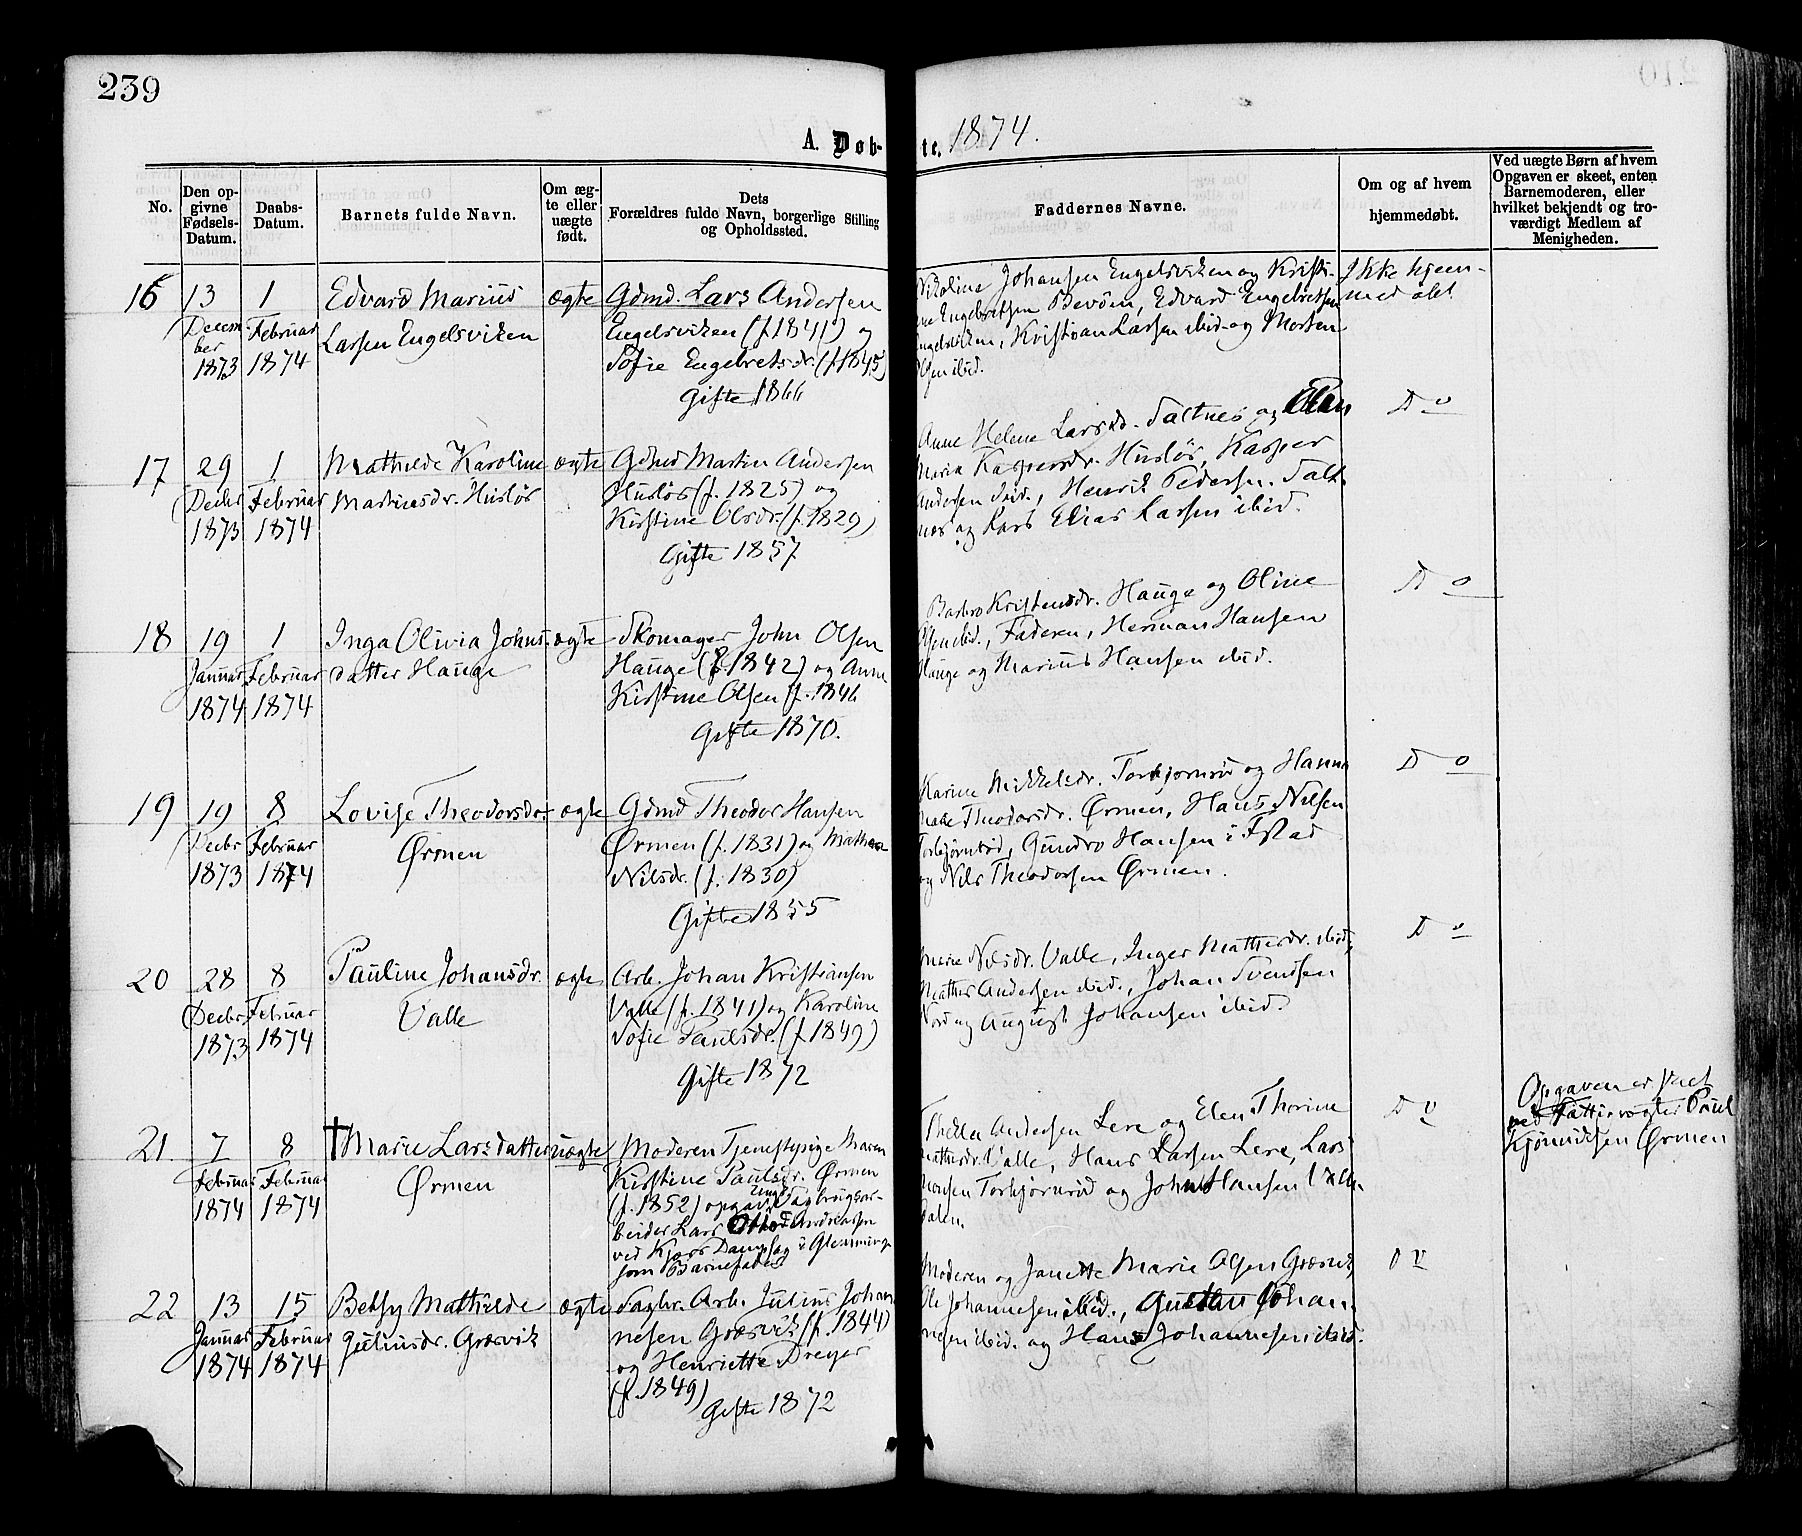 239
A. Døbte. 1874.
No.
Den opgivne Fødsels-Datum.
Daabs-Datum.
Barnets fulde Navn.
Om ægte eller uægte født.
Dets Forældres fulde Navn, borgerlige Stilling og Opholdssted.
Faddernes Navne.
Om og af hvem hjemmedøbt.
Ved uægte Børn af hvem Opgaven er skeet, enten Barnemoderen, eller hvilket bekjendt og troværdigt Medlem af Menigheden.
16
13 December 1873
1 Februar 1874
Edvard Marius
Larsen Engelsviken
ægte
Gdmd. Lars Andersen
Engelsviken (f. 1841) og
Sofie Engebretsdr. (f. 1845)
Gifte 1866
Nikoline Johansen Engelsviken og Kristi-
ne Engebretsen Bevøen, Edvard Engebretsen
Engelsviken, Kristian Larsen ibid. og Morten
Olsen ibid.
Ikke hjem-
medøbt
17
29 Decbr 1873
1 Februar 1874
Mathilde Karoline
Martinsdr. Husløs
ægte
Gdmd Martin Andersen
Husløs (f. 1825) og
Kirstine Olsdr. (f. 1829)
Gifte 1857
Anne Helene Larsd. Saltnes og Elen
Maria Kaspersdr. Husløs, Kasper
Andersen ibid., Henrik Pedersen Salt-
næs og Lars Elias Larsen ibid.
D o
18
19 Januar 1874
1 Februar 1874
Inga Olivia Johns-
datter Hauge
ægte
Skomager John Olsen
Hauge (f. 1842) og Anne
Kirstine Olsen (f. 1846
Gifte 1870.
Barbro Kristensdr. Hauge og Oline
Olsen ibid., Faderen, Herman Hansen
Hauge og Marius Hansen ibid.
D o
19
19 Decbr 1873
8 Februar 1874
Lovise Theodorsdr.
Ørmen
ægte
Gdmd Theodor Hansen
Ørmen (f. 1831) og Mathea
Nilsdr. (f. 1830)
Gifte 1855
Karine Mikkelsdr. Torbjørnrød og Hanna
Theodorsdr. Ørmen, Hans Nilsen
Torbjørnrød, Gundro Hansen i Fstad
og Nils Theodorsen Ørmen.
D o
20
28 Decbr. 1873
8 Februar 1874
Pauline Johansdr.
Valle
ægte
Arb. Johan Kristiansen
Valle (f. 1841) og Karoline
Sofie Paulsdr. (f. 1849)
Gifte 1872
Marie Nilsdr. Valle, Inger Mathisdr. ibid.,
Mathis Andersen ibid., Johan Svendsen
og August Johansen ibid.
D o
21.
7 Februar 1874
8 Februar 1874
† Marie Larsdatter
Ørmen
uægte
Moderen Tjenestpige Maren
Kirstine Paulsdr. Ørmen
(f. 1852) opgav Ungk. Sagbrugsar-
beider Lars Andreasen
ved Kjærs Dampsag i Glemminge
som Barnefader
Thea Andersen Lere og Elen Thorine
Mathisdr. Valle, Hans Larsen Lere, Lars
Monsen Torbjørnrød og John Hansen
dalen.
D o
Opgaven er skeet
ved Fattigvogter Poul
Kjønnidsen Ørmen
22
13 Januar 1874
15 Februar 1874
Betsy Mathilde
Juliusdr. Græsvik
ægte
Sagbr. Arb. Julius Johan-
nesen Græsvik (f. 1844)
og Henriette Dreyer
(f. 1849)
Gifte 1872
Moderen og Janette Marie Olsen Græsvik,
Ole Johannesen ibid., Gustav Johan-
nesen ibid. og Hans Johannesen ibid.
D o